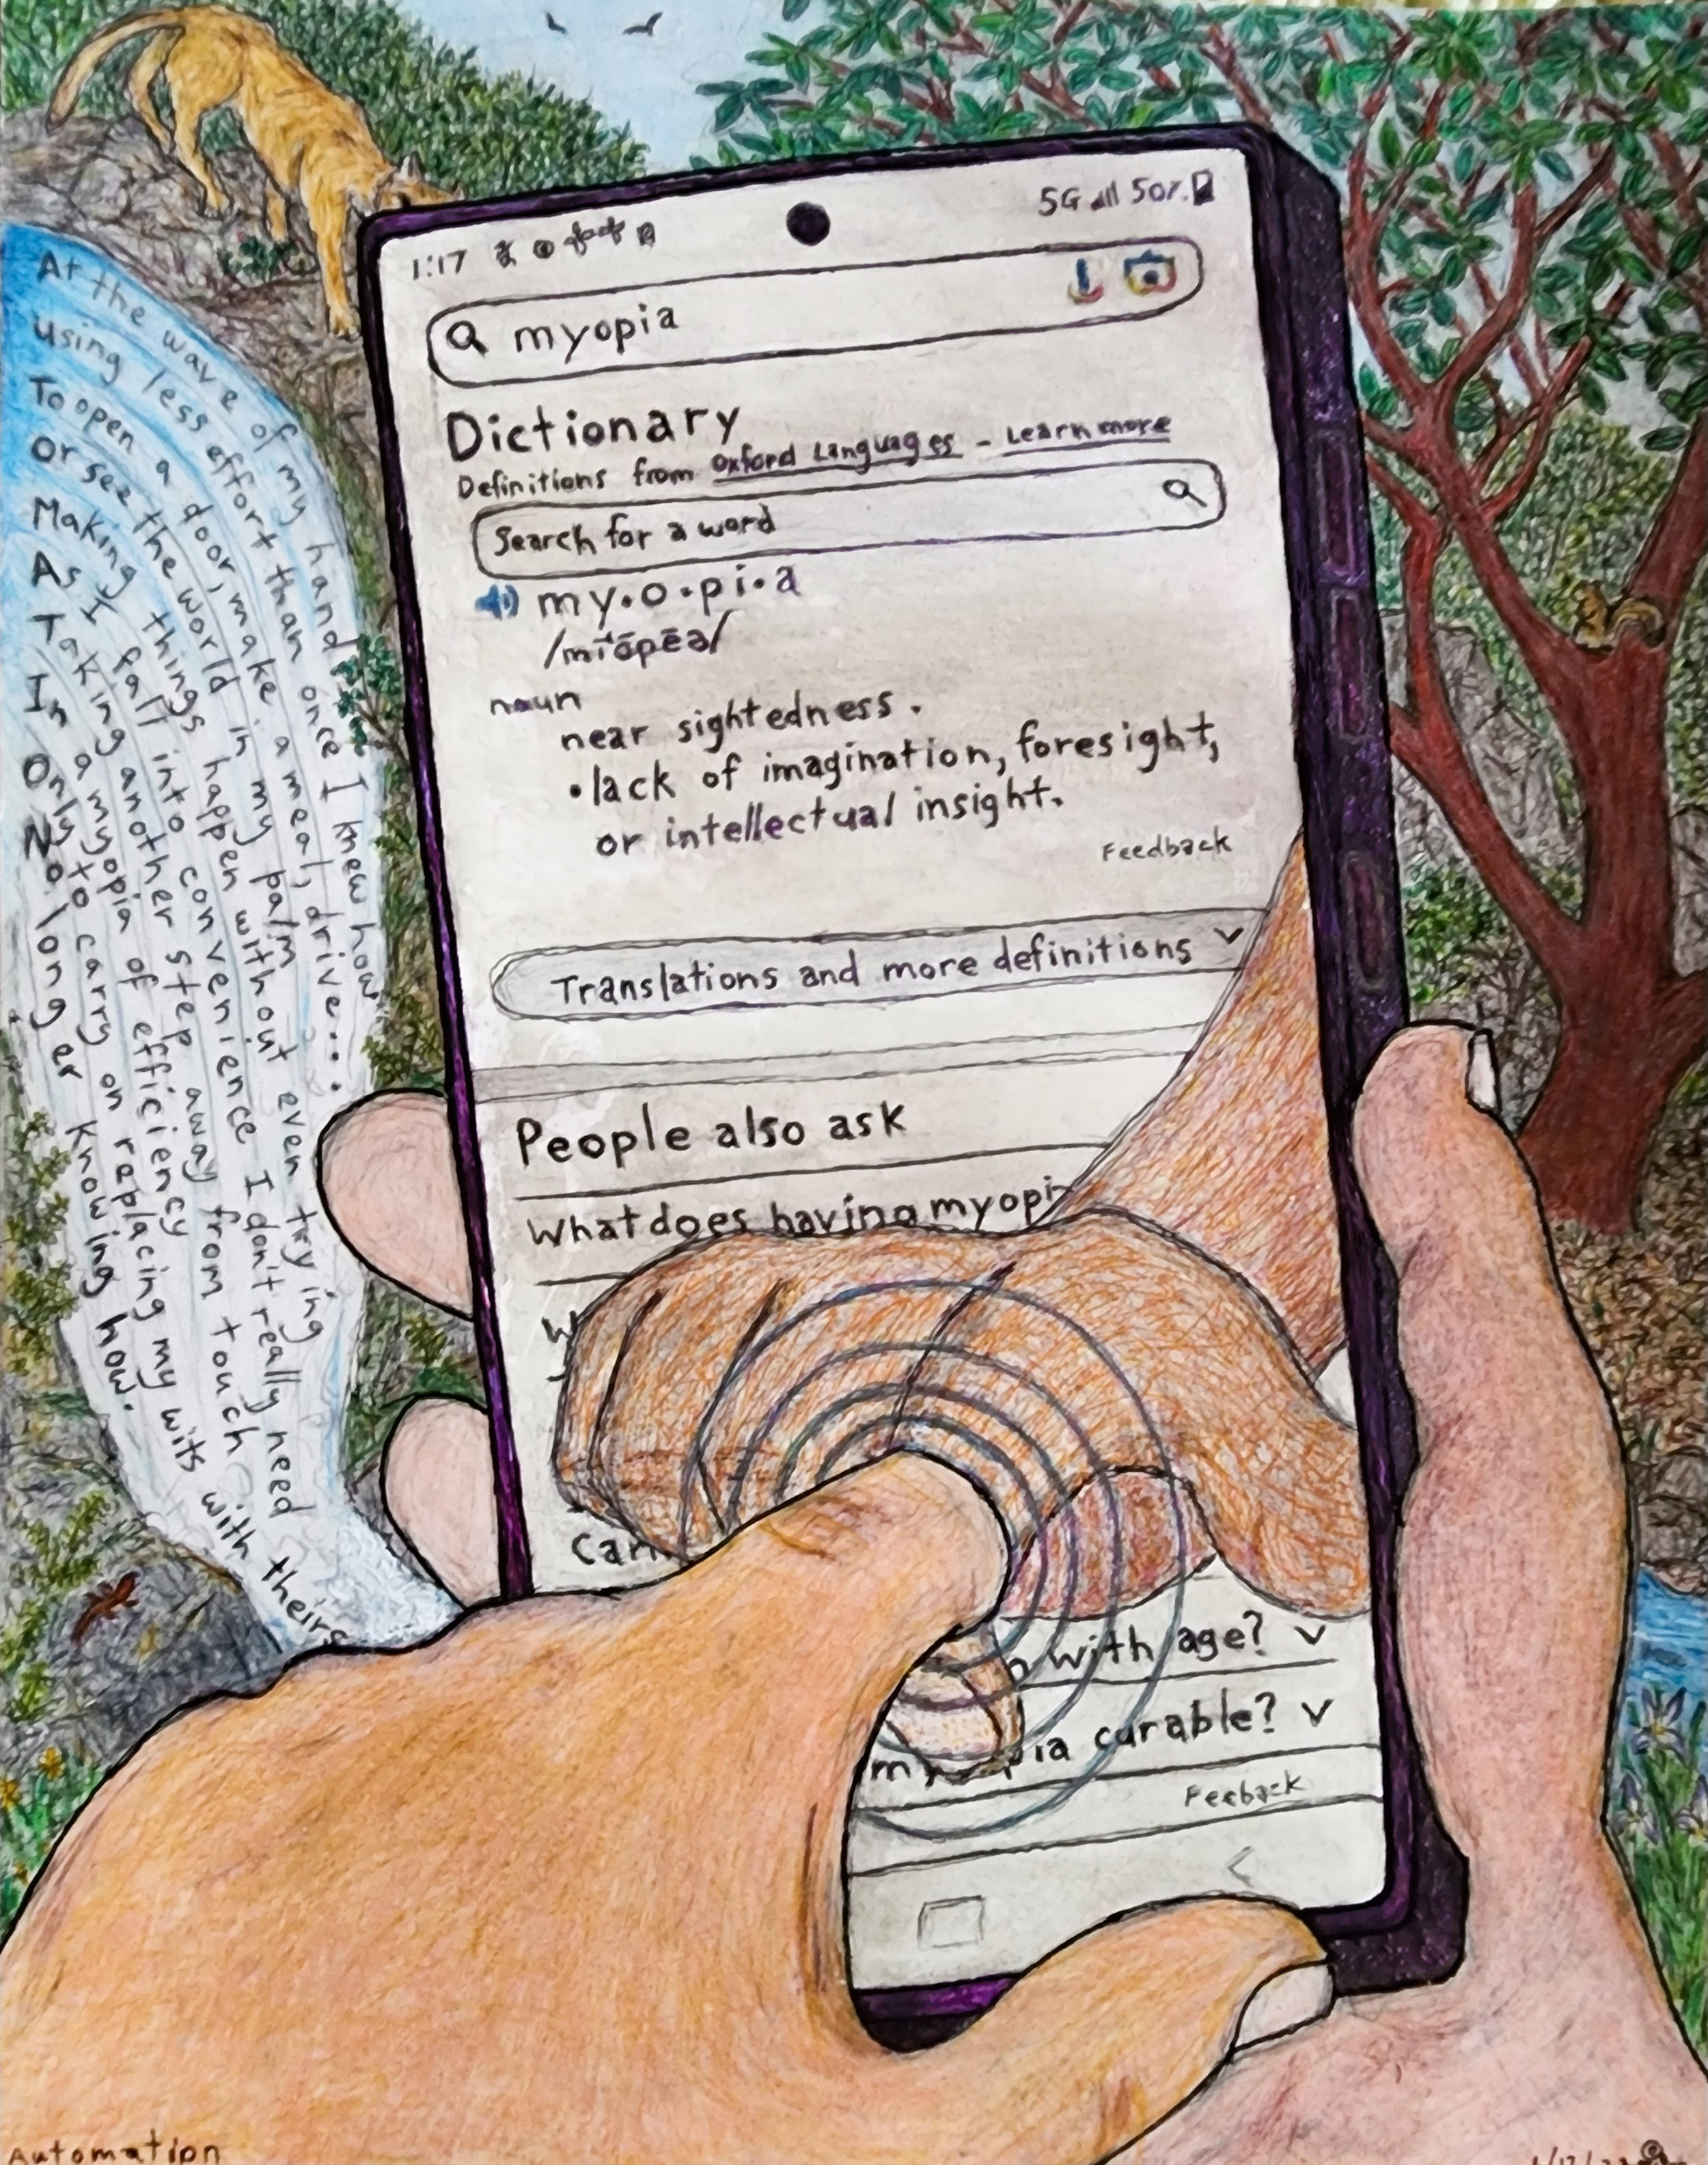 At the wave of my hand
using less effort than once I knew how
To open a door, make a meal, drive....
Or see the world in my palm
Making things happen without even trying
As I fall into convenience I don't really need
Taking another step away from touch
In a myopia of efficiency
Only to carry on replacing my wits with theirs
No longer knowing how.
1:17 5G 50%
myopia
Dictionary
Definitions from Oxford Languages - Learn more
Search for a word
my·o·pi·a
/mīˈōpēə/
noun
near sightedness.
•lack of imagination, foresight,
or intellectual insight.
Feedback
Translations and more definitions
People also ask
What does having myopi
W
Can
with age?
pia curable?
Feeback
Automation